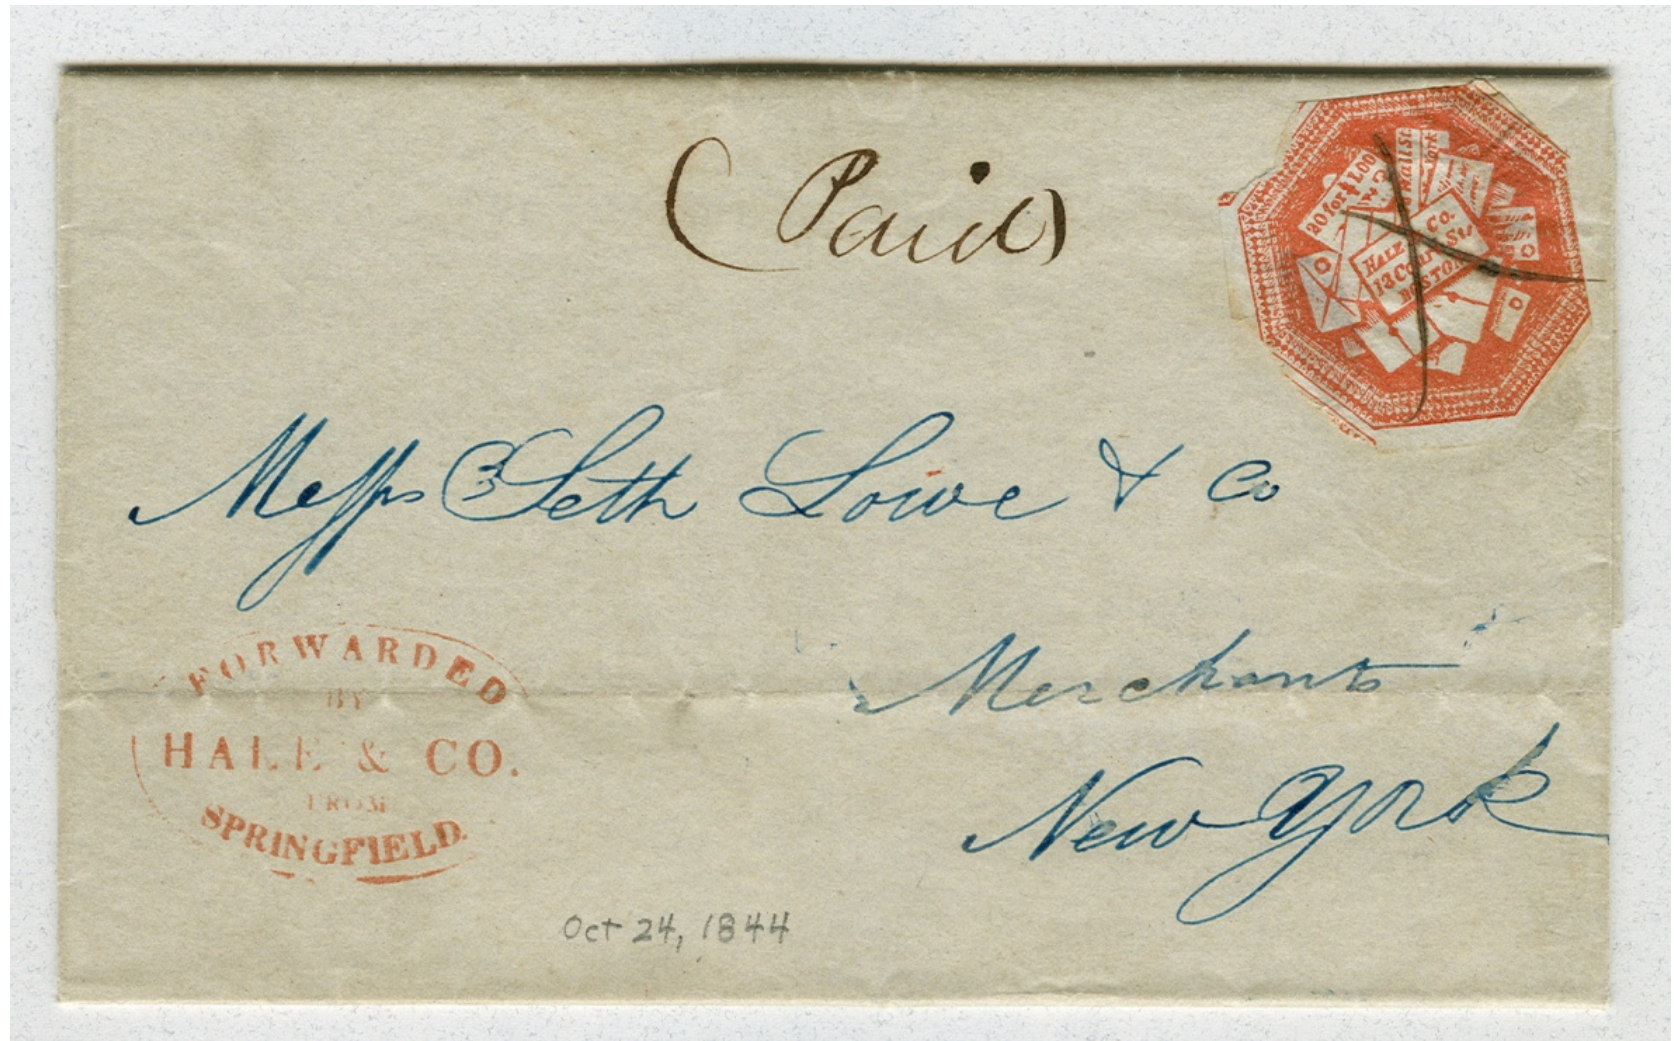 Paid
20 for $1.00
HALE & CO.
13 Court St.
BOSTON
Messrs Seth Lowe & Co
Merchants
New York
FORWARDED
BY
HALE & CO.
FROM
SPRINGFIELD.
Oct 24, 1844